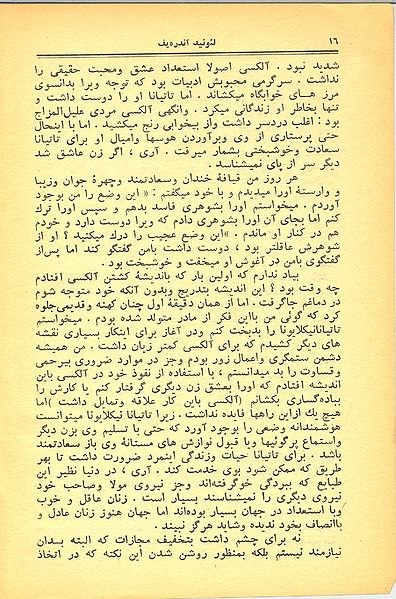 ۱۶ لئونید آندره‌یف
شدید نبود . آلکسی اصولا استعداد عشق ومحبت حقیقی را
نداشت . سرگرمی محبوبش ادبیات بود که توجه ویرا بدانسوی
مرز های خوابگاه میکشاند . اما تاتیانا او را دوست داشت و
تنها بخاطر او زندگانی میکرد . وانگهی آلکسی مردی علیل‌المزاج
بود : اغلب دردسر داشت واز بیخوابی رنج میکشید . اما با اینحال
حتی پرستاری از وی وبرآوردن هوسها وامیال او برای تاتیانا
سعادت وخوشبختی بشمار میرفت . آری ، اگر زن عاشق شد
دیگر سر از پای نمیشناسد .
هر روز من قیافهٔ خندان وسعادتمند وچهرهٔ جوان وزیبا
و وارستهٔ اورا میدیدم و با خود میگفتم : « این وضع را من بوجود
آوردم . میخواستم اورا بشوهری فاسد بدهم و سپس اورا ترك
کنم اما بجای آن اورا بشوهری دادم که ویرا دوست دارد و خودم
هم در کنار او ماندم . »این وضع عجیب را درك میکنید ؟ او از
شوهرش عاقلتر بود ، دوست داشت بامن گفتگو کند اما پس‌از
گفتگوی بامن در آغوش او میخفت و خوشبخت بود .
بیاد ندارم که اولین بار که باندیشهٔ کشتن آلکسی افتادم
چه وقت بود ؟ این اندیشه بتدریج وبدون آنکه خود متوجه شوم
در دماغم جاگرفت . اما از همان دقیقهٔ اول چنان کهنه وقدیمی‌جلوه
کرد که گوئی من بااین فکر از مادر متولد شده بودم . میخواستم
تاتیانانیکلایونا را بدبخت کنم ودر آغاز برای ابتکار بسیاری نقشه
های دیگر کشیدم که برای آلکسی کمتر زیان داشت . من همیشه
دشمن ستمگری واعمال زور بودم وجز در موارد ضروری بیرحمی
وقساوت را بد میدانستم ، با استفاده از نفوذ خود در آلکسی باین
اندیشه افتادم که اورا بعشق زن دیگری گرفتار کنم یا کارش را
بباده‌گساری بکشانم (آلکسی باین کار علاقه وتمایل داشت )اما
هیچ یك ازاین راهها فایده نداشت . زیرا تاتیانا نیکلایونا میتوانست
هوشمندانه وضعی را بوجود آورد که حتی با تسلیم وی بزن دیگر
واستماع پرگوئیها وبا قبول نوازش های مستانهٔ وی باز سعادتمند
باشد . برای تاتیانا حیات وزندگی اینمرد ضرورت داشت تا بهر
طریق که ممکن شود بوی خدمت کند . آری ، در دنیا نظیر این
طبایع که ببردگی خوگرفته‌اند وجز نیروی مولا وصاحب خود
نیروی دیگری را نمیشناسند بسیار است . زنان عاقل و خوب
وبا استعداد در جهان بسیار بوده‌اند اما جهان هنوز زنان عادل و
باانصاف بخود ندیده وشاید هرگز نبیند .
نه برای چشم داشت بتخفیف مجازات که البته بدان
نیازمند نیستم بلکه بمنظور روشن شدن این نکته که در اتخاذ